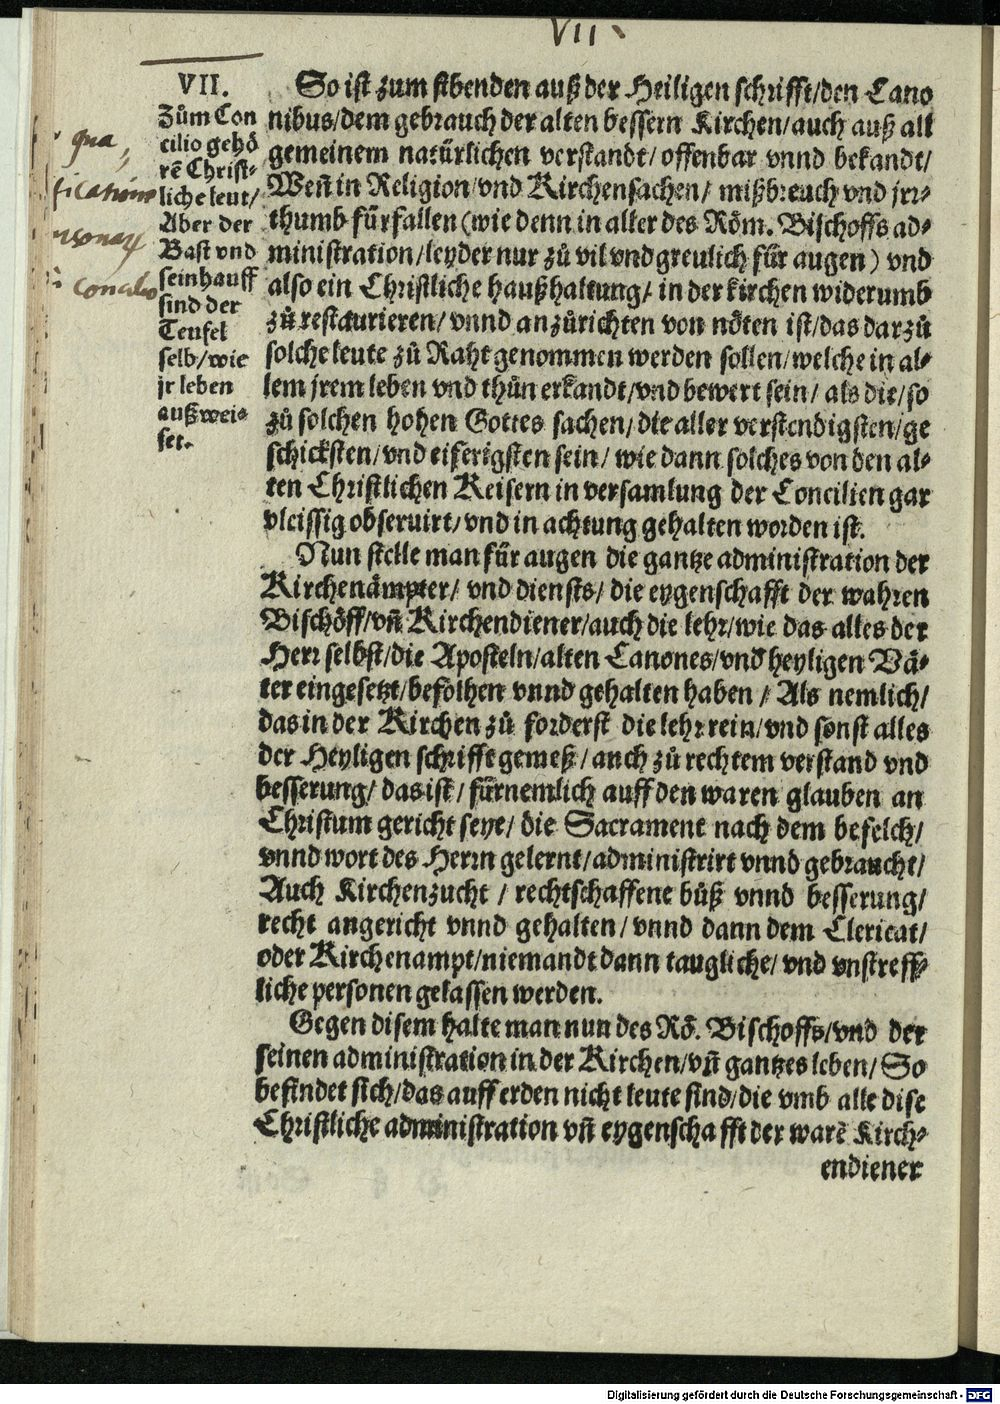 VII
VII.
Zům Con
cilio gehö
rẽ Christ⸗
liche leut/
Aber der
Bast vnd
sein hauff
sind der
Teufel
selb/wie
jr leben
auß wei⸗
set.
qua
Concilio
So ist zum sibenden auß der Heiligen schrifft/den Cano
nibus/dem gebrauch der alten bessern Kirchen/auch auß all
gemeinem natürlichen verstandt/offenbar vnnd bekandt/
Weñ in Religion/vnd Kirchensachen/ mißbreuch vnd jrr⸗
thumb fürfallen (wie denn in aller des Röm. Bischoffs ad⸗
ministration/leyder nur zů vil vnd greulich für augen) vnd
also ein Christliche haußhaltung/ in der kirchen widerumb
zů restaurieren/ vnnd anzůrichten von nöten ist/das darzů
solche leute zů Raht genommen werden sollen/welche in al⸗
lem jrem leben vnd thůn erkandt/vnd bewert sein/ als die/so
zů solchen hohen Gottes sachen/die aller verstendigsten/ge
schicksten/vnd eiferigsten sein/ wie dann solches von den al⸗
ten Christlichen Keisern in versamlung der Concilien gar
vleissig obseruirt/vnd in achtung gehalten worden ist.
Nun stelle man für augen die gantze administration der
Kirchenämpter/ vnd diensts/ die eygenschafft der wahren
Bischöff/vñ Kirchendiener/auch die lehr/wie das alles der
Herr selbst/die Aposteln/alten Canones/vnd heyligen Vä⸗
ter eingesetzt/befolhen vnnd gehalten haben / Als nemlich/
das in der Kirchen zů forderst die lehr rein/vnd sonst alles
der Heyligen schrifft gemeß/auch zů rechtem verstand vnd
besserung/ das ist/ fürnemlich auff den waren glauben an
Christum gericht seye/ die Sacrament nach dem befelch/
vnnd wort des Herrn gelernt/administrirt vnnd gebraucht/
Auch Kirchenzucht / rechtschaffene bůß vnnd besserung/
recht angericht vnnd gehalten/vnnd dann dem Clericat/
oder Kirchenampt/niemandt dann taugliche/ vnd vnstreff⸗
liche personen gelassen werden.
Gegen disem halte man nun des Rö. Bischoffs/vnd der
seinen administration in der Kirchen/vñ gantzes leben/ So
befindet sich/das auff erden nicht leute sind/die vmb alle dise
Christliche administration vñ eygenschafft der warẽ Kirch⸗
endiener
Digitalisierung gefördert durch die Deutsche Forschungsgemeinschaft - DFG